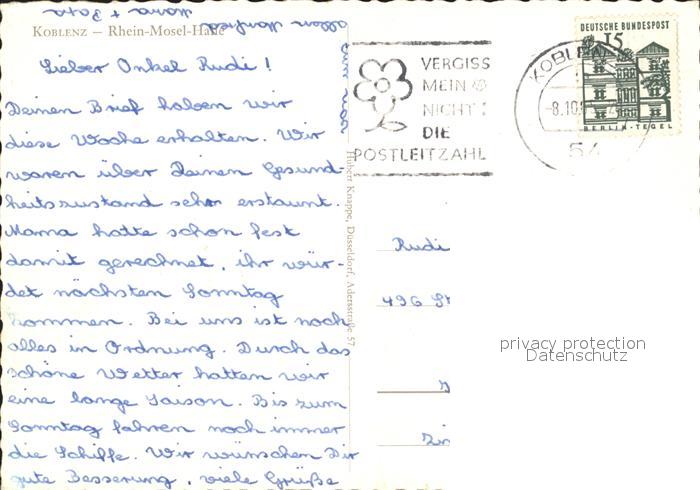 KOBLENZ – Rhein-Mosel-Halle
Lieber Onkel Rudi!
Deinen Brief haben wir
diese Woche erhalten. Wir
waren über Deinen Gesund-
heitszustand sehr erstaunt.
Mama hatte schon fest
damit gerechnet, ihr wür-
det nächsten Sonntag
kommen. Bei uns ist noch
alles in Ordnung. Durch das
schöne Wetter hatten wir
eine lange Saison. Bis zum
Sonntag fahren noch immer
die Schiffe. Wir wünschen Dir
gute Besserung, viele Grüße
allen Manfred
Mama + Papa
Hubert Knappe, Düsseldorf, Adersstraße 57
VERGISS
MEIN
NICHT!
DIE
POSTLEITZAHL
KOBLENZ
-8.10.
54
DEUTSCHE BUNDESPOST
15
BERLIN-TEGEL
Rudi
496 St
privacy protection
Datenschutz